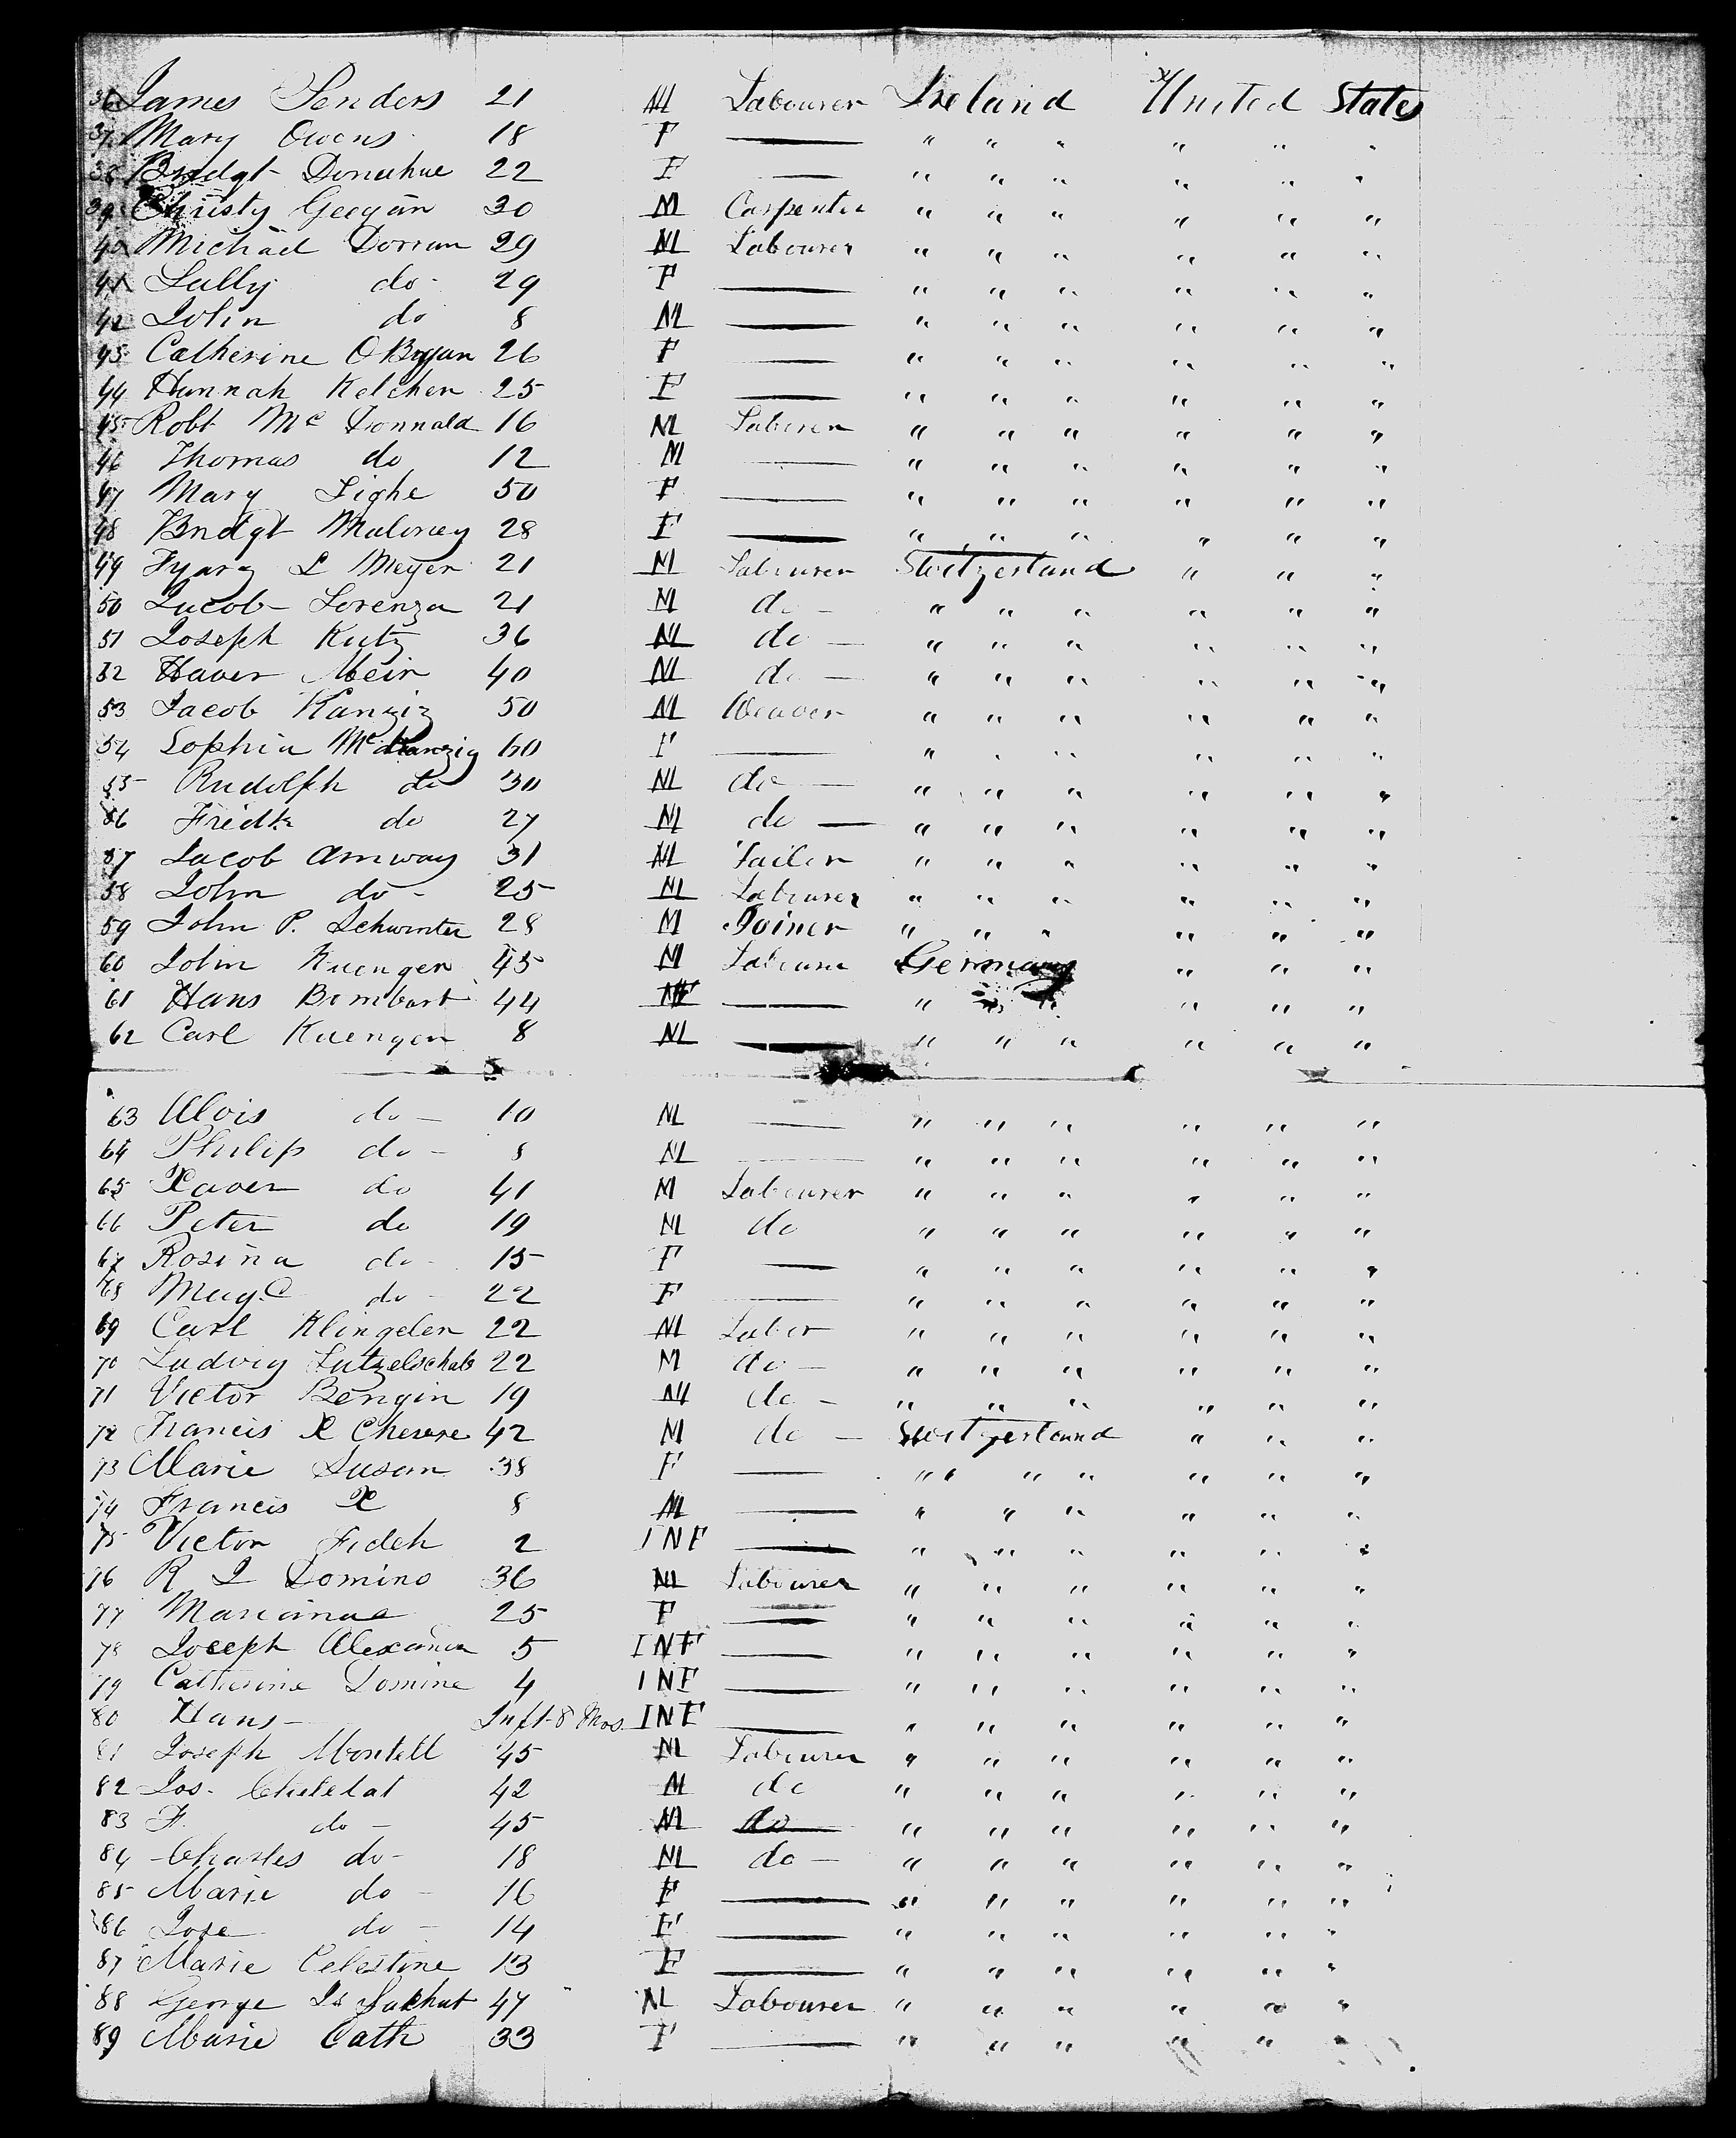 36 James Senders 21 M Labourer Ireland United States
37 Mary Owens 18 F — " " " " " "
38 Bridgt Donahue 22 F — " " " " " "
39 Christy Geogan 30 M Carpenter " " " " " "
40 Michael Dorran 29 M Labourer " " " " " "
41 Sally do - 29 F — " " " " " "
42 John do 8 M — " " " " " "
43 Catherine O Bryan 26 F — " " " " " "
44 Hannah Kelcher 25 F — " " " " " "
45 Robt Mc Donnald 16 M Laborer " " " " " "
46 Thomas do 12 M — " " " " " "
47 Mary Tighe 50 F — " " " " " "
48 Bridgt Maloney 28 F — " " " " " "
49 L Meyer 21 M Labourer Switzerland " " "
50 Jacob Lorenza 21 M do - " " " " " "
51 Joseph Kutz 36 M do - " " " " " "
52 Haver Meir 40 M do - " " " " " "
53 Jacob Kanziz 50 M Weaver " " " " " "
54 Sophia Mc Kanzig 60 F — " " " " " "
55 Rudolph do 30 M do — " " " " " "
56 Fredk do 27 M do — " " " " " "
57 Jacob Amway 31 M Tailer " " " " " "
58 John do - 25 M Labourer " " " " " "
59 John P. Schwinter 28 M Joiner " " " " " "
60 John Kuenger 45 M Labourer Germany " " "
61 Hans Bombart 44 — " " " " " "
62 Carl Kuenger 8 M — " " " " " "
63 Alois do - 10 M — " " " " " "
64 Philip do - 8 M — " " " " " "
65 Xaver do 41 M Labourer " " " " " "
66 Peter do 19 M do " " " " " "
67 Rosina do - 15 F — " " " " " "
68 Mag. C do - 22 F — " " " " " "
69 Carl Klingeler 22 M Labor " " " " " "
70 Ludvig Lutzelschab 22 M do - " " " " " "
71 Victor Bengin 19 M do - " " " " " "
72 Francis X Chevere 42 M do - Switzerland " " "
73 Marie Susan 38 F — " " " " " "
74 Francis X 8 M — " " " " " "
75 Victor Fideh 2 INF — " " " " " "
76 R J Domino 36 M Labourer " " " " " "
77 Marianne 25 F — " " " " " "
78 Joseph 5 INF — " " " " " "
79 Catherine Domine 4 INF — " " " " " "
80 Hans - Inft 8 Mos INF — " " " " " "
81 Joseph Montell 45 M Labourer " " " " " "
82 Jos. Chatelat 42 M do " " " " " "
83 F. do - 45 M do " " " " " "
84 Charles do - 18 M do - " " " " " "
85 Marie do - 16 F — " " " " " "
86 Jose do - 14 F — " " " " " "
87 Marie Celestine 13 F — " " " " " "
88 George 47 M Labourer " " " " " "
89 Marie Cath 33 F — " " " " " "